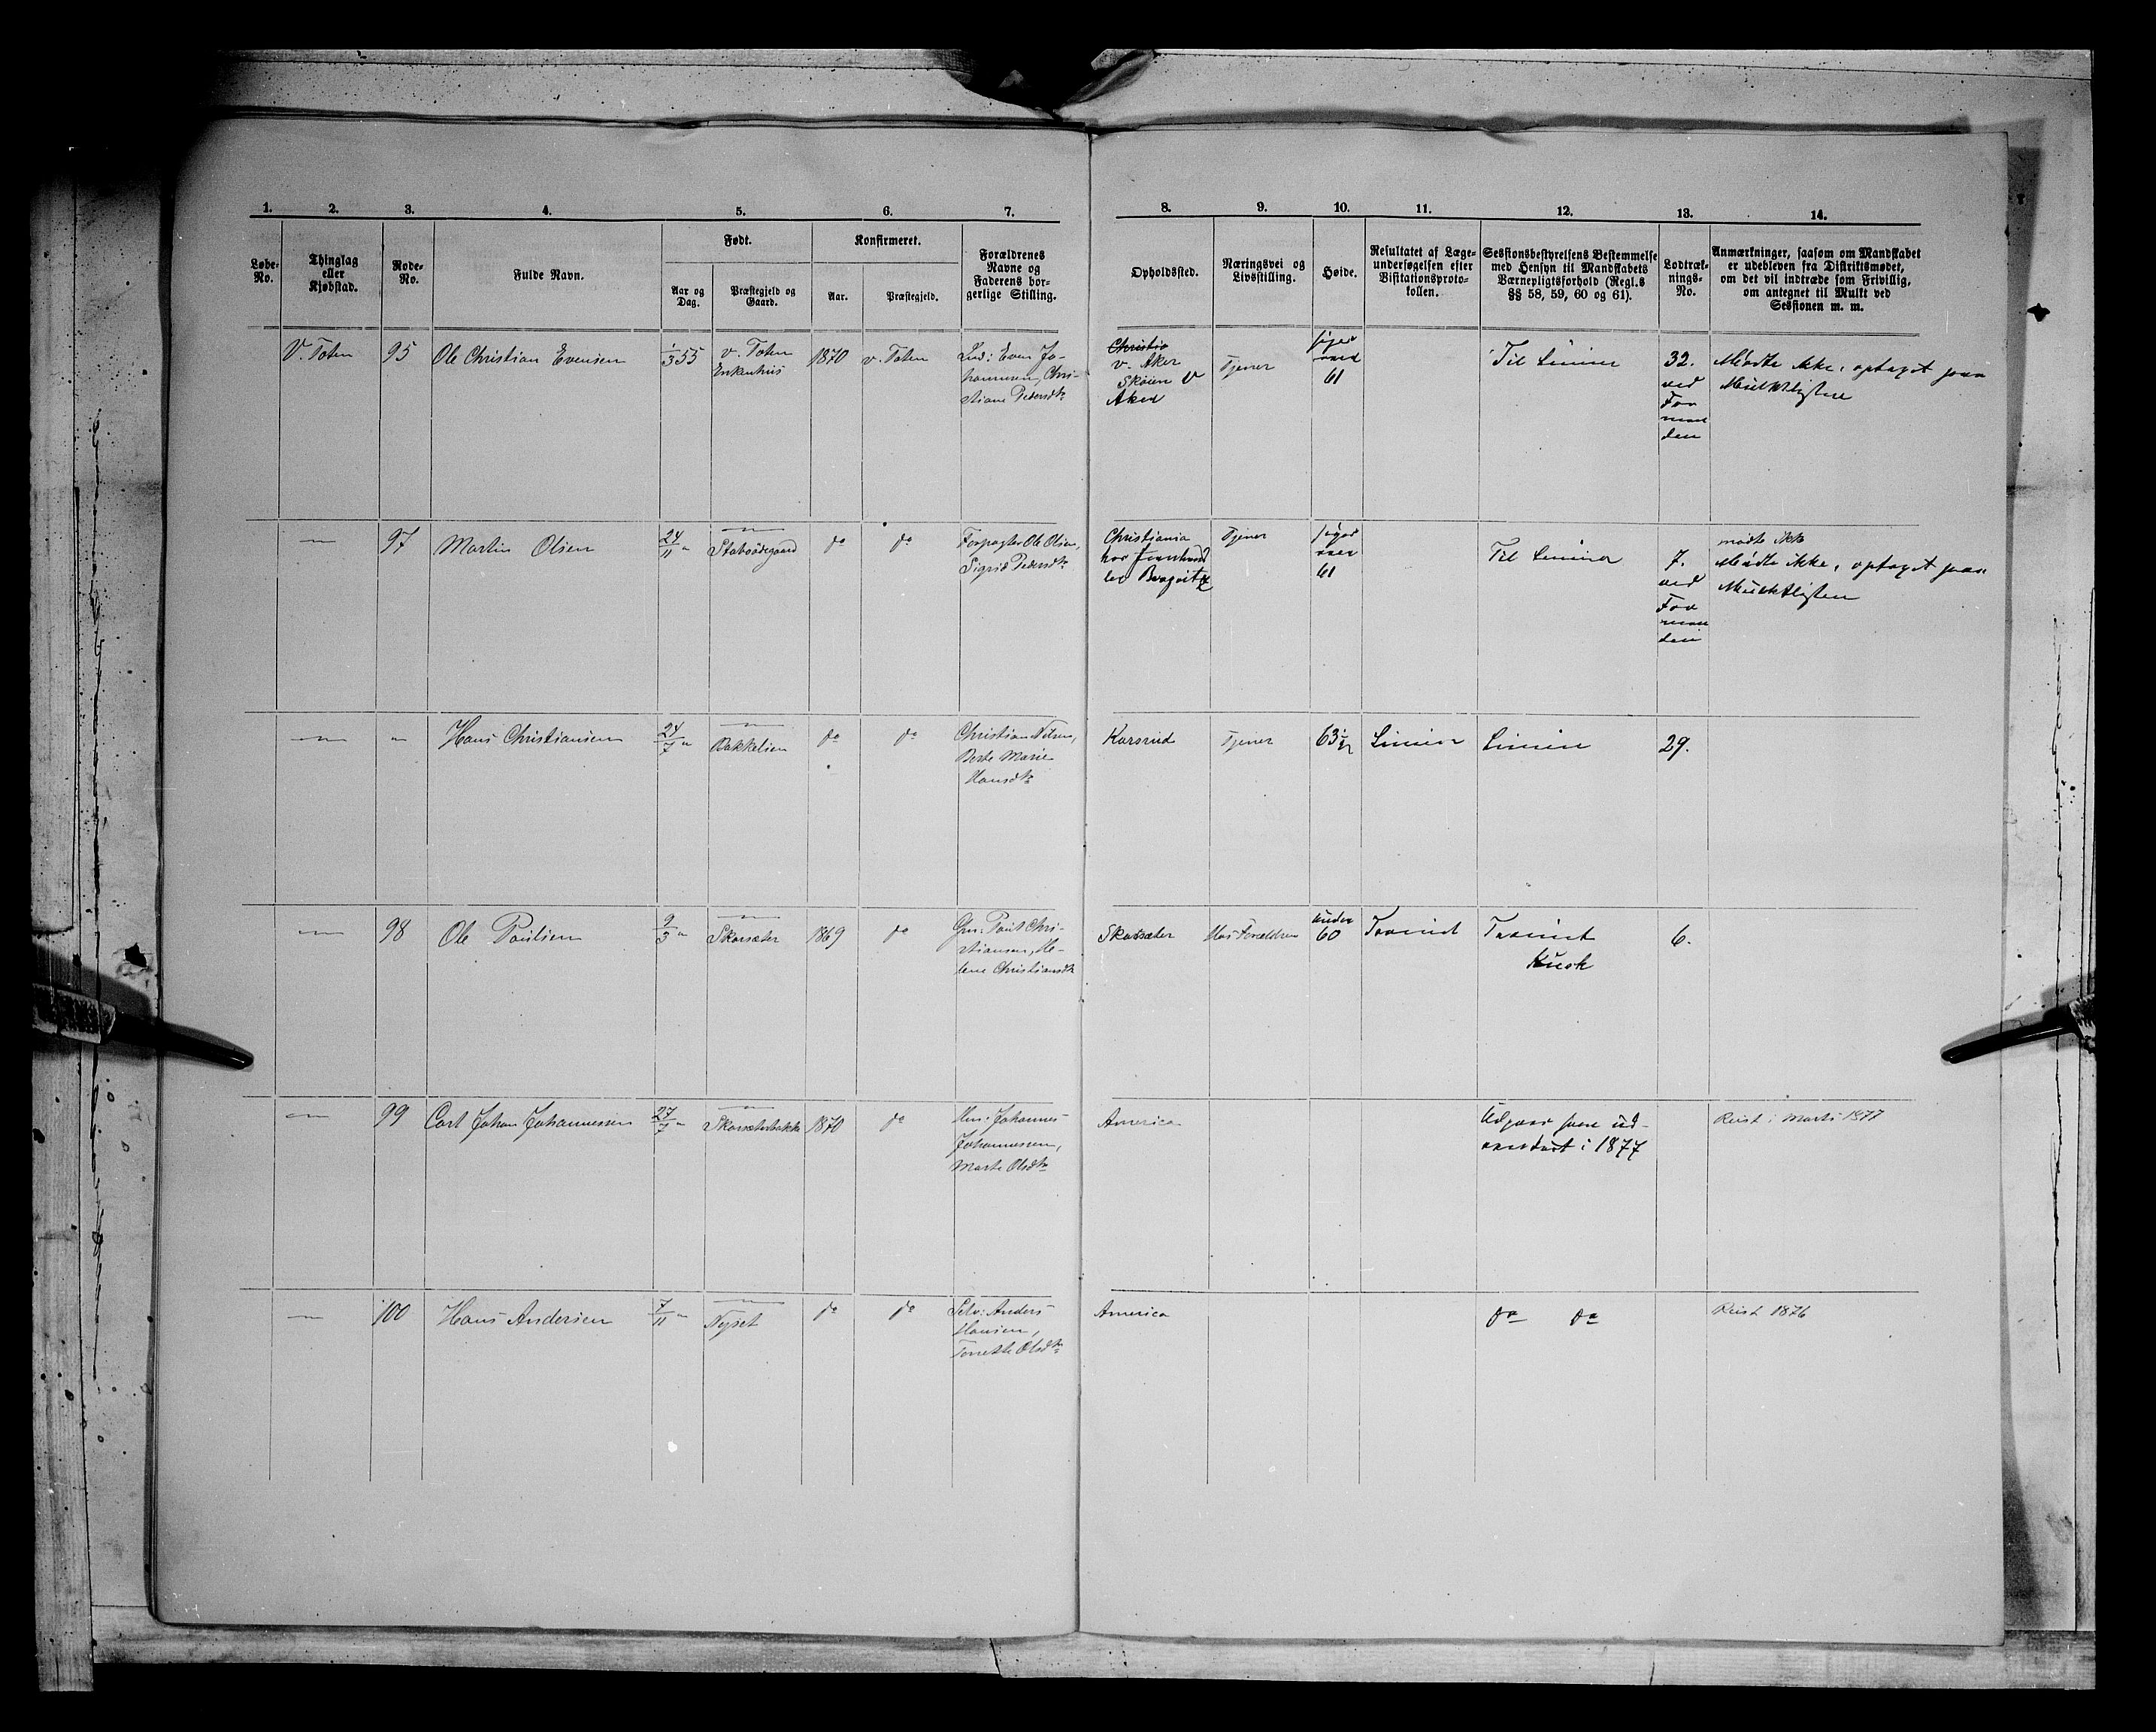 1. 2. 3. 4. 5. 6. 7. 8. 9. 10. 11. 12. 13. 14.
Løbe-No.
Thinglag eller Kjøbstad.
Rode-No.
Fulde Navn.
Født.
Aar og Dag.
Præstegjeld og Gaard.
Konfirmeret.
Aar.
Præstegjeld.
Forældrenes Navne og Faderens borgerlige Stilling.
Opholdssted.
Næringsvei og Livsstilling.
Høide.
Resultatet af Lægeundersøgelsen efter Visitationsprotokollen.
Sessionsbestyrelsens Bestemmelse med Hensyn til Mandskabets Værnepligtsforhold (Regl.s §§ 58, 59, 60 og 61).
Lodtræknings-No.
Anmærkninger, saasom om Mandskabet er udebleven fra Distriktsmødet, om det vil indtræde som Frivillig, om antegnet til Mulkt ved Sessionen m. m.
V. Toten 95 Ole Christian Evensen 1/3 55 V. Toten Enkenhus 1870 V. Toten Ind: Even Johannesen, Christiane Pedersdtr
Christia V. Aker Skøien V Aker Tjener 61 Til Linien 32. ved Formanden Mødte ikke, optaget paa Mulktlisten
— 97 Martin Olsen 24/11 " — Staboødegaard do do Forpagter Ole Olsen, Sigrid Pedersdtr
Christiania hos Tjener 61 Til Linien 7. ved Formanden mødte ikke Mødte ikke, optaget paa Mulktlisten
— " Hans Christiansen 24/7 " — Bakkelien do do Christian Nilsen, Berte Marie Hansdtr
Karsrud Tjener 63 1/2 Linien Linien 29.
— 98 Ole Paulsen 9/3 " — Skarsæter 1869 do Gm: Paul Christiansen, Helene Christiansdtr
Skarsæter Hos Forældrene under 60 Trainet Trainet Kusk 6.
— 99 Carl Johan Johannessen 27/7 " — Skarsæterbakke 1870 do Hm: Johannes Johannessen, Marte Olsdtr
America Udgaar som udvandret i 1877 Reist i Marts 1877
— 100 Hans Andersen 7/11 " — Nyset do do Selv: Anders Hansen, Tonette Olsdtr
America do do Reist 1876